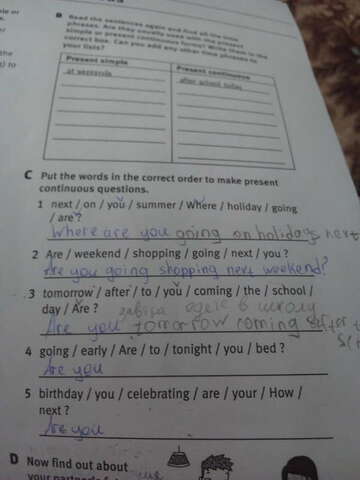 B Read the sentences again and find all the time
phrases. Are they usually used with the present
simple or present continuous forms? Write them in the
correct box. Can you add any other time phrases to
your lists?
Present simple Present continuous
at weekends after school today
C Put the words in the correct order to make present
continuous questions.
1 next / on / you / summer / Where / holiday / going
/ are ?
Where are you going on holiday next
2 Are / weekend / shopping / going / next / you ?
Are you going shopping next weekend?
3 tomorrow / after / to / you / coming / the / school /
day / Are ?
в школу
Are you tomorrow coming
4 going / early / Are / to / tonight / you / bed ?
Are you
5 birthday / you / celebrating / are / your / How /
next ?
Are you
D Now find out about